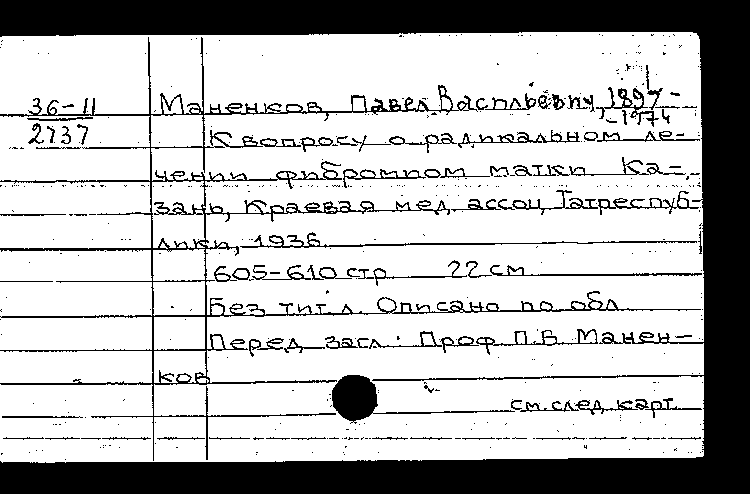 36-11
2737
Маненков, Павел Васильевич, 1897-
-1974
К вопросу о радикальном ле-
чении фибромиом матки. Ка-
зань, Краевая мед. ассоц. Татреспуб-
лики, 1936.
605-610 стр. 22 см.
Без тит. л. Описано по обл.
Перед загл.: Проф. П.В. Манен-
ков
см. след. карт.